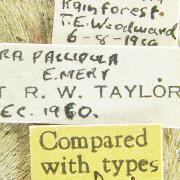 Rainforest.
T.E. Woodward
6-8-1950
RA PALLIDULA
EMERY
T. R. W. TAYLOR
EC. 1960.
Compared
with types